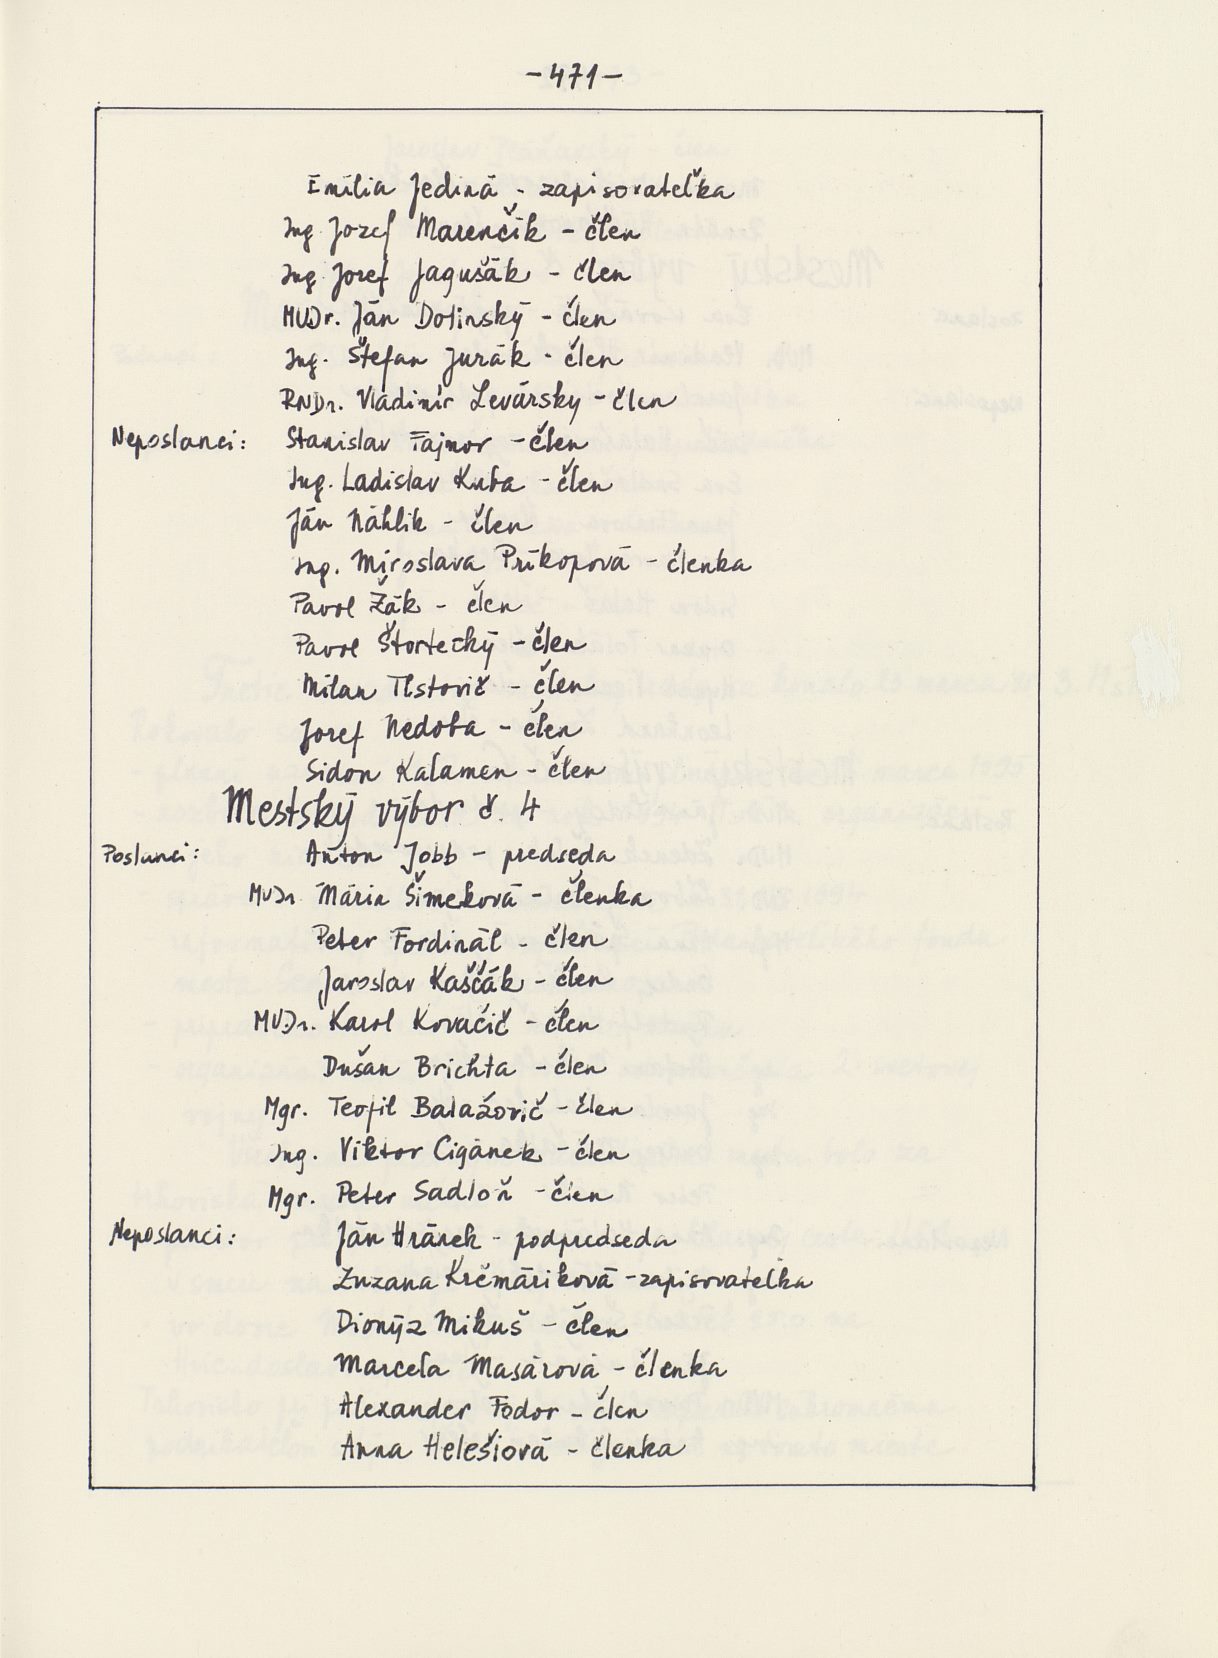 -471-
Emília Jediná - zapisovateľka
Ing Jozef Marenčík - člen
Ing. Jozef Jagušák - člen
MUDr. Ján Dolinský - člen
Ing. Štefan Jurák - člen
RNDr. Vladimír Levársky - člen
Neposlanci: Stanislav Fajnor - člen
Ing. Ladislav Kuba - člen
Ján Náhlik - člen
Ing. Miroslava Príkopová - členka
Pavol Žák - člen
Pavol Štortecký - člen
Milan Tlstovič - člen
Jozef Nedoba - člen
Sidon Kalamen - člen
Mestský výbor č. 4
Poslanci: Anton Jobb - predseda
MUDr Mária Šimeková - členka
Peter Fordinál - člen
Jaroslav Kaščák - člen
MUDr. Karol Kovačič - člen
Dušan Brichta - člen
Mgr. Teofil Balažovič - člen
Ing. Viktor Cigánek - člen
Mgr. Peter Sadloň - člen
Neposlanci: Ján Hránek - podpredseda
Zuzana Krčmáriková - zapisovateľka
Dionýz Mikuš - člen
Marcela Masárová - členka
Alexander Fodor - člen
Anna Helešiová - členka